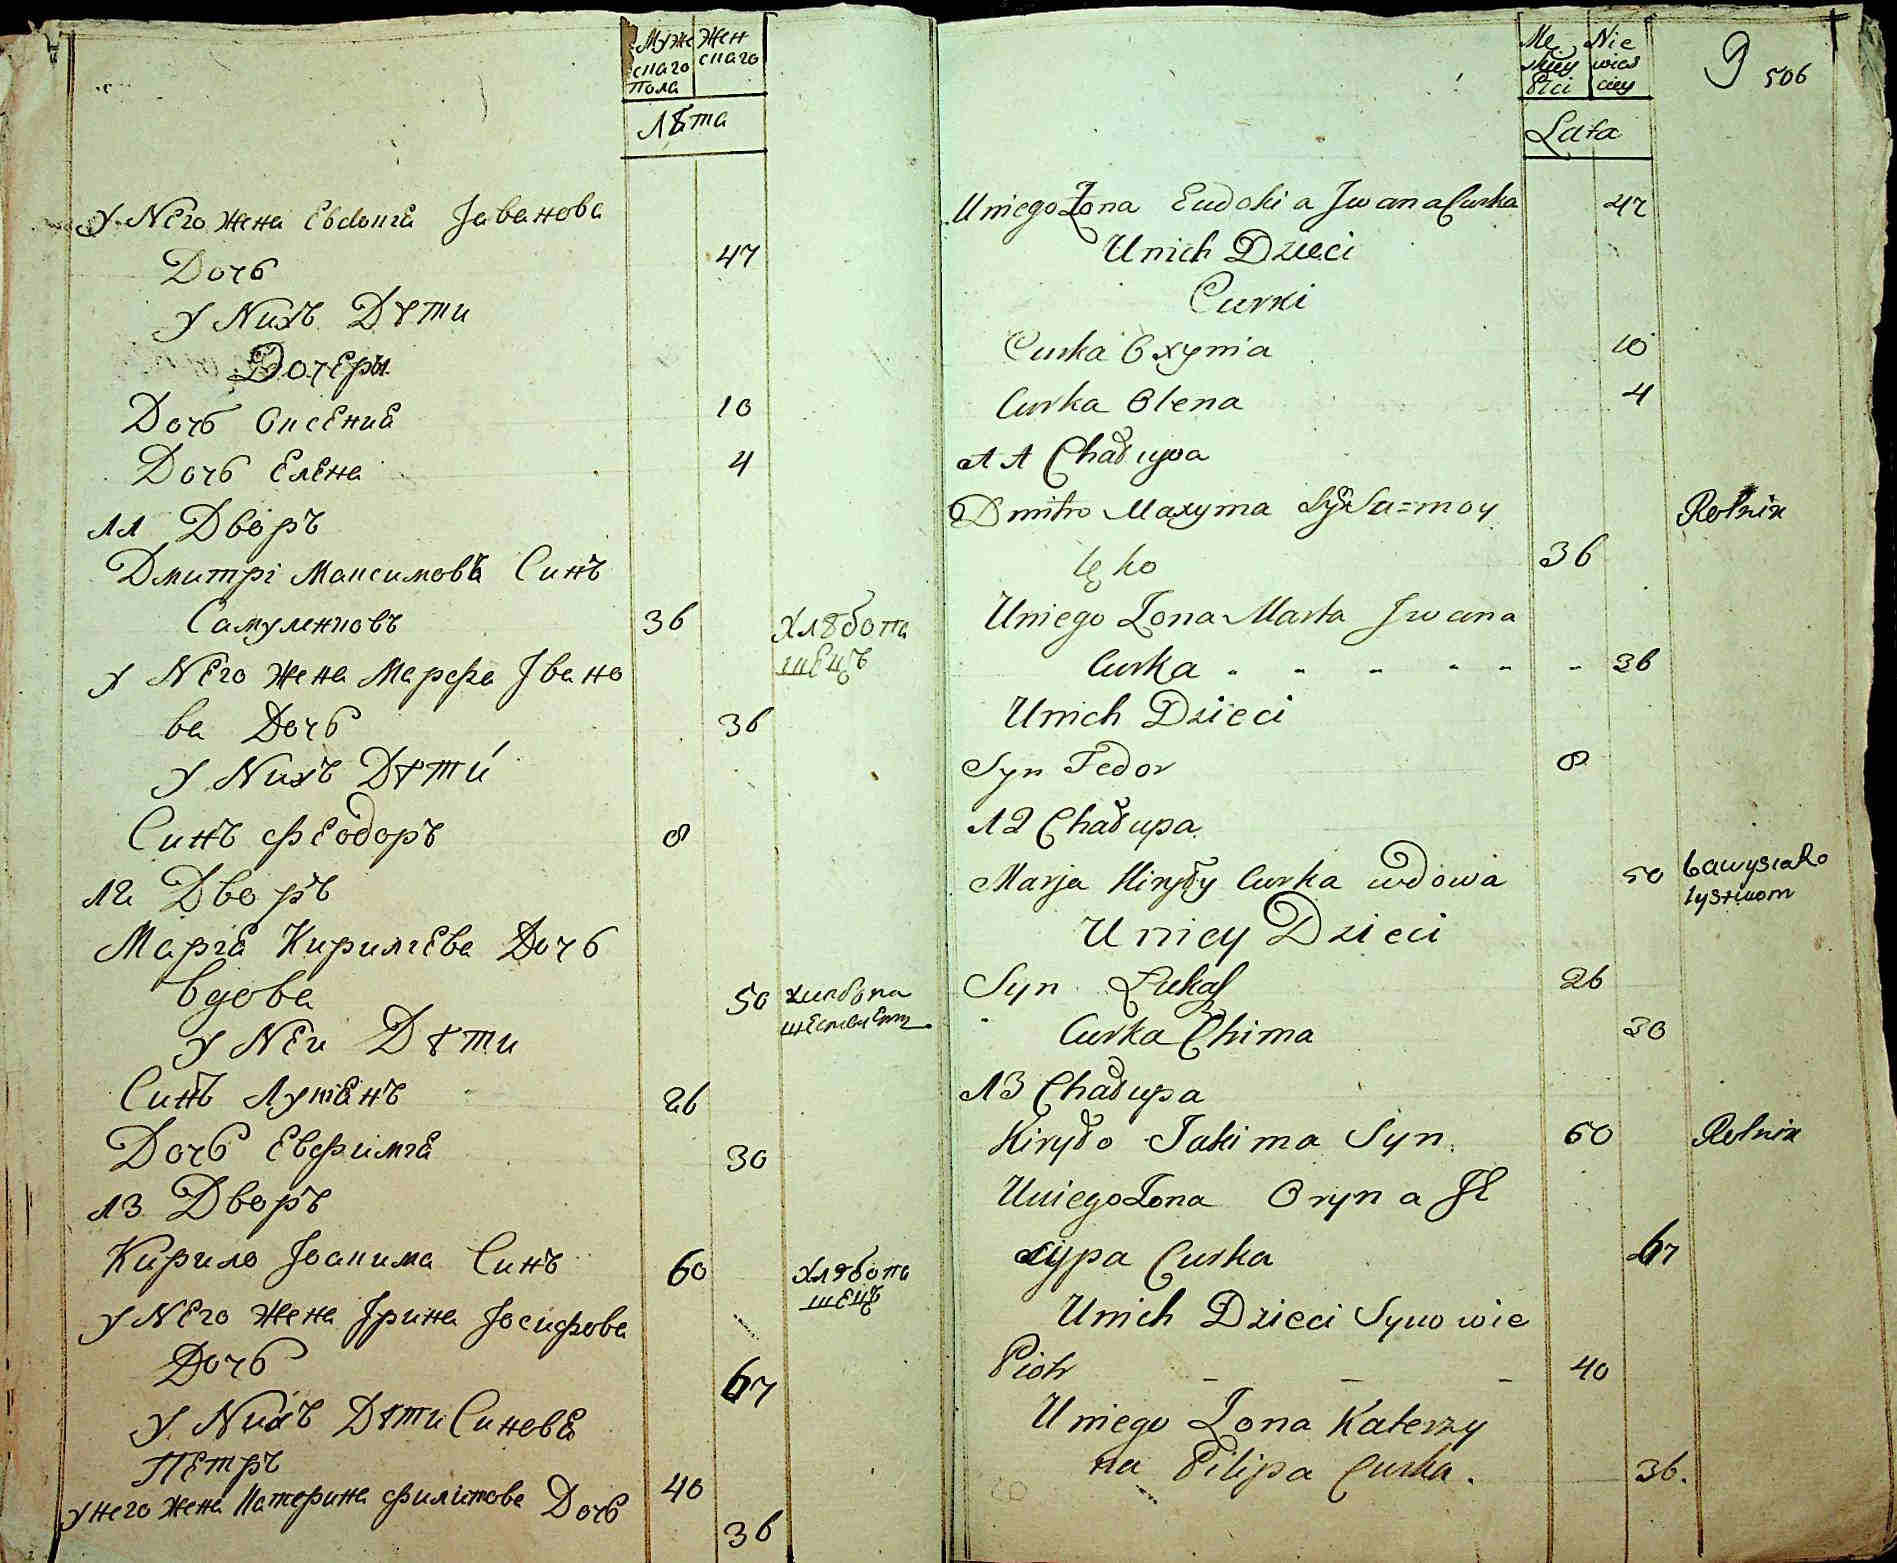 Муже Жен
скаго скаго
Пола
Лѣта
У Него Жена Евдокиѣ Јванова
Дочь 47
У Нихъ Дѣти
Дочеры
Дочь Оксениѣ 10
Дочь Елена 4
лл Дворъ
Дмитрі Максимовъ Синъ
Самуленковъ 36 Хлѣбопа
шецъ
У Него Жена Марфа Јвано
ва Дочь 36
У Нихъ Дѣти
Синъ Феодоръ 8
л2 Дворъ
Маргѣ Кирилгева Дочь
Вдова 50
У Неи Дѣти
Синъ 26
Дочь Евфимгѣ 30
л3 Дворъ
Кирило Јоакима Синъ 60 Хлѣбопа
шецъ
У Него Жена Јрина Јосифова
Дочь 67
У Нихъ Дѣти Синовѣ
Петръ 40
У него Жена Катерина Филипова Дочь
36
Mę Nie
skiey wias
Płci ciey
Lata
9 506
U niego Żona Eudokia Jwana Curka 47
U nich Dzieci
Curki
Curka Oxynia 10
Curka Olena 4
ΛΛ Chałupa
Dmitro Maxyma Syn Sa=moy
lęko 36 Rolnik
U niego Żona Marta Jwana
Curka - - - - - - 36
U nich Dzieci
Syn Fedor 8
Λ2 Chałupa
Marja Kiryły Curka wdowa 50
U niey Dzieci
Syn Łukasz 26
Curka Chima 30
Λ3 Chałupa
Kiryło Jakima Syn 60 Rolnik
U niego Żona Oryna
Curka 67
U nich Dzieci Synowie
Piotr - - - 40
U niego Żona Katerzy
na Filipa Curka. 36.